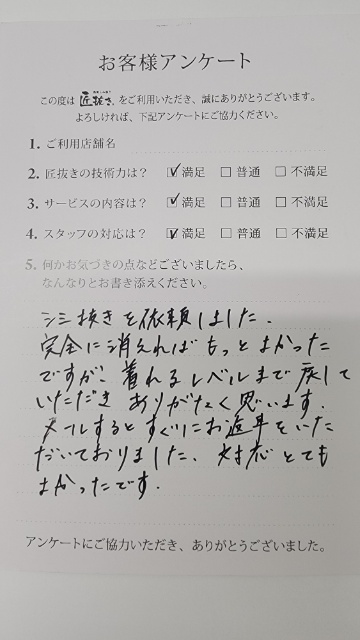 お客様アンケート
この度は 匠抜き をご利用いただき、誠にありがとうございます。
よろしければ、下記アンケートにご協力ください。
1. ご利用店舗名
2. 匠抜きの技術力は? ☑満足 □普通 □不満足
3. サービスの内容は? ☑満足 □普通 □不満足
4. スタッフの対応は? ☑満足 □普通 □不満足
5. 何かお気づきの点などございましたら、
なんなりとお書き添えください。
シミ抜きを依頼しました。
完全に消えればもっとよかった
ですが、着れるレベルまで戻して
いただきありがたく思います。
メールするとすぐにお返事をいた
だいておりました、対応とても
よかったです。
アンケートにご協力いただき、ありがとうございました。